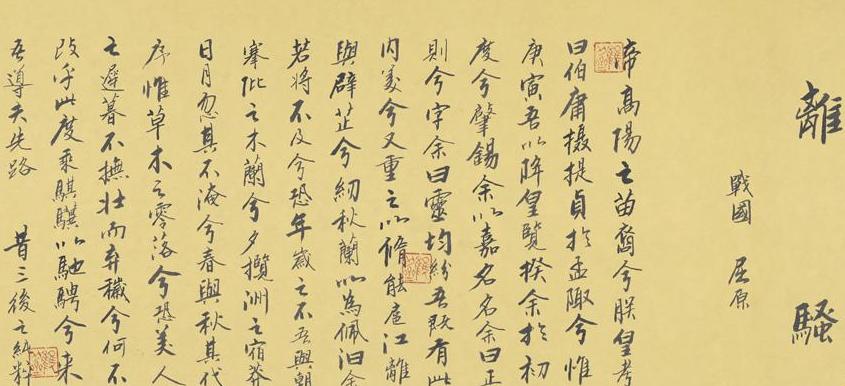 離騷
戰國 屈原
帝高陽之苗裔兮朕皇考
曰伯庸攝提貞於孟陬兮惟
庚寅吾以降皇覽揆余於初
度兮肇錫余以嘉名名余曰正
則兮字余曰靈均紛吾既有此
內美兮又重之以脩能扈江離
與辟芷兮紉秋蘭以為佩汩余
若將不及兮恐年歲之不吾與朝
搴阰之木蘭兮夕攬洲之宿莽
日月忽其不淹兮春與秋其代
序惟草木之零落兮恐美人
之遲暮不撫壯而棄穢兮何不
改乎此度乘騏驥以馳騁兮来
吾導夫先路 昔三後之純粹